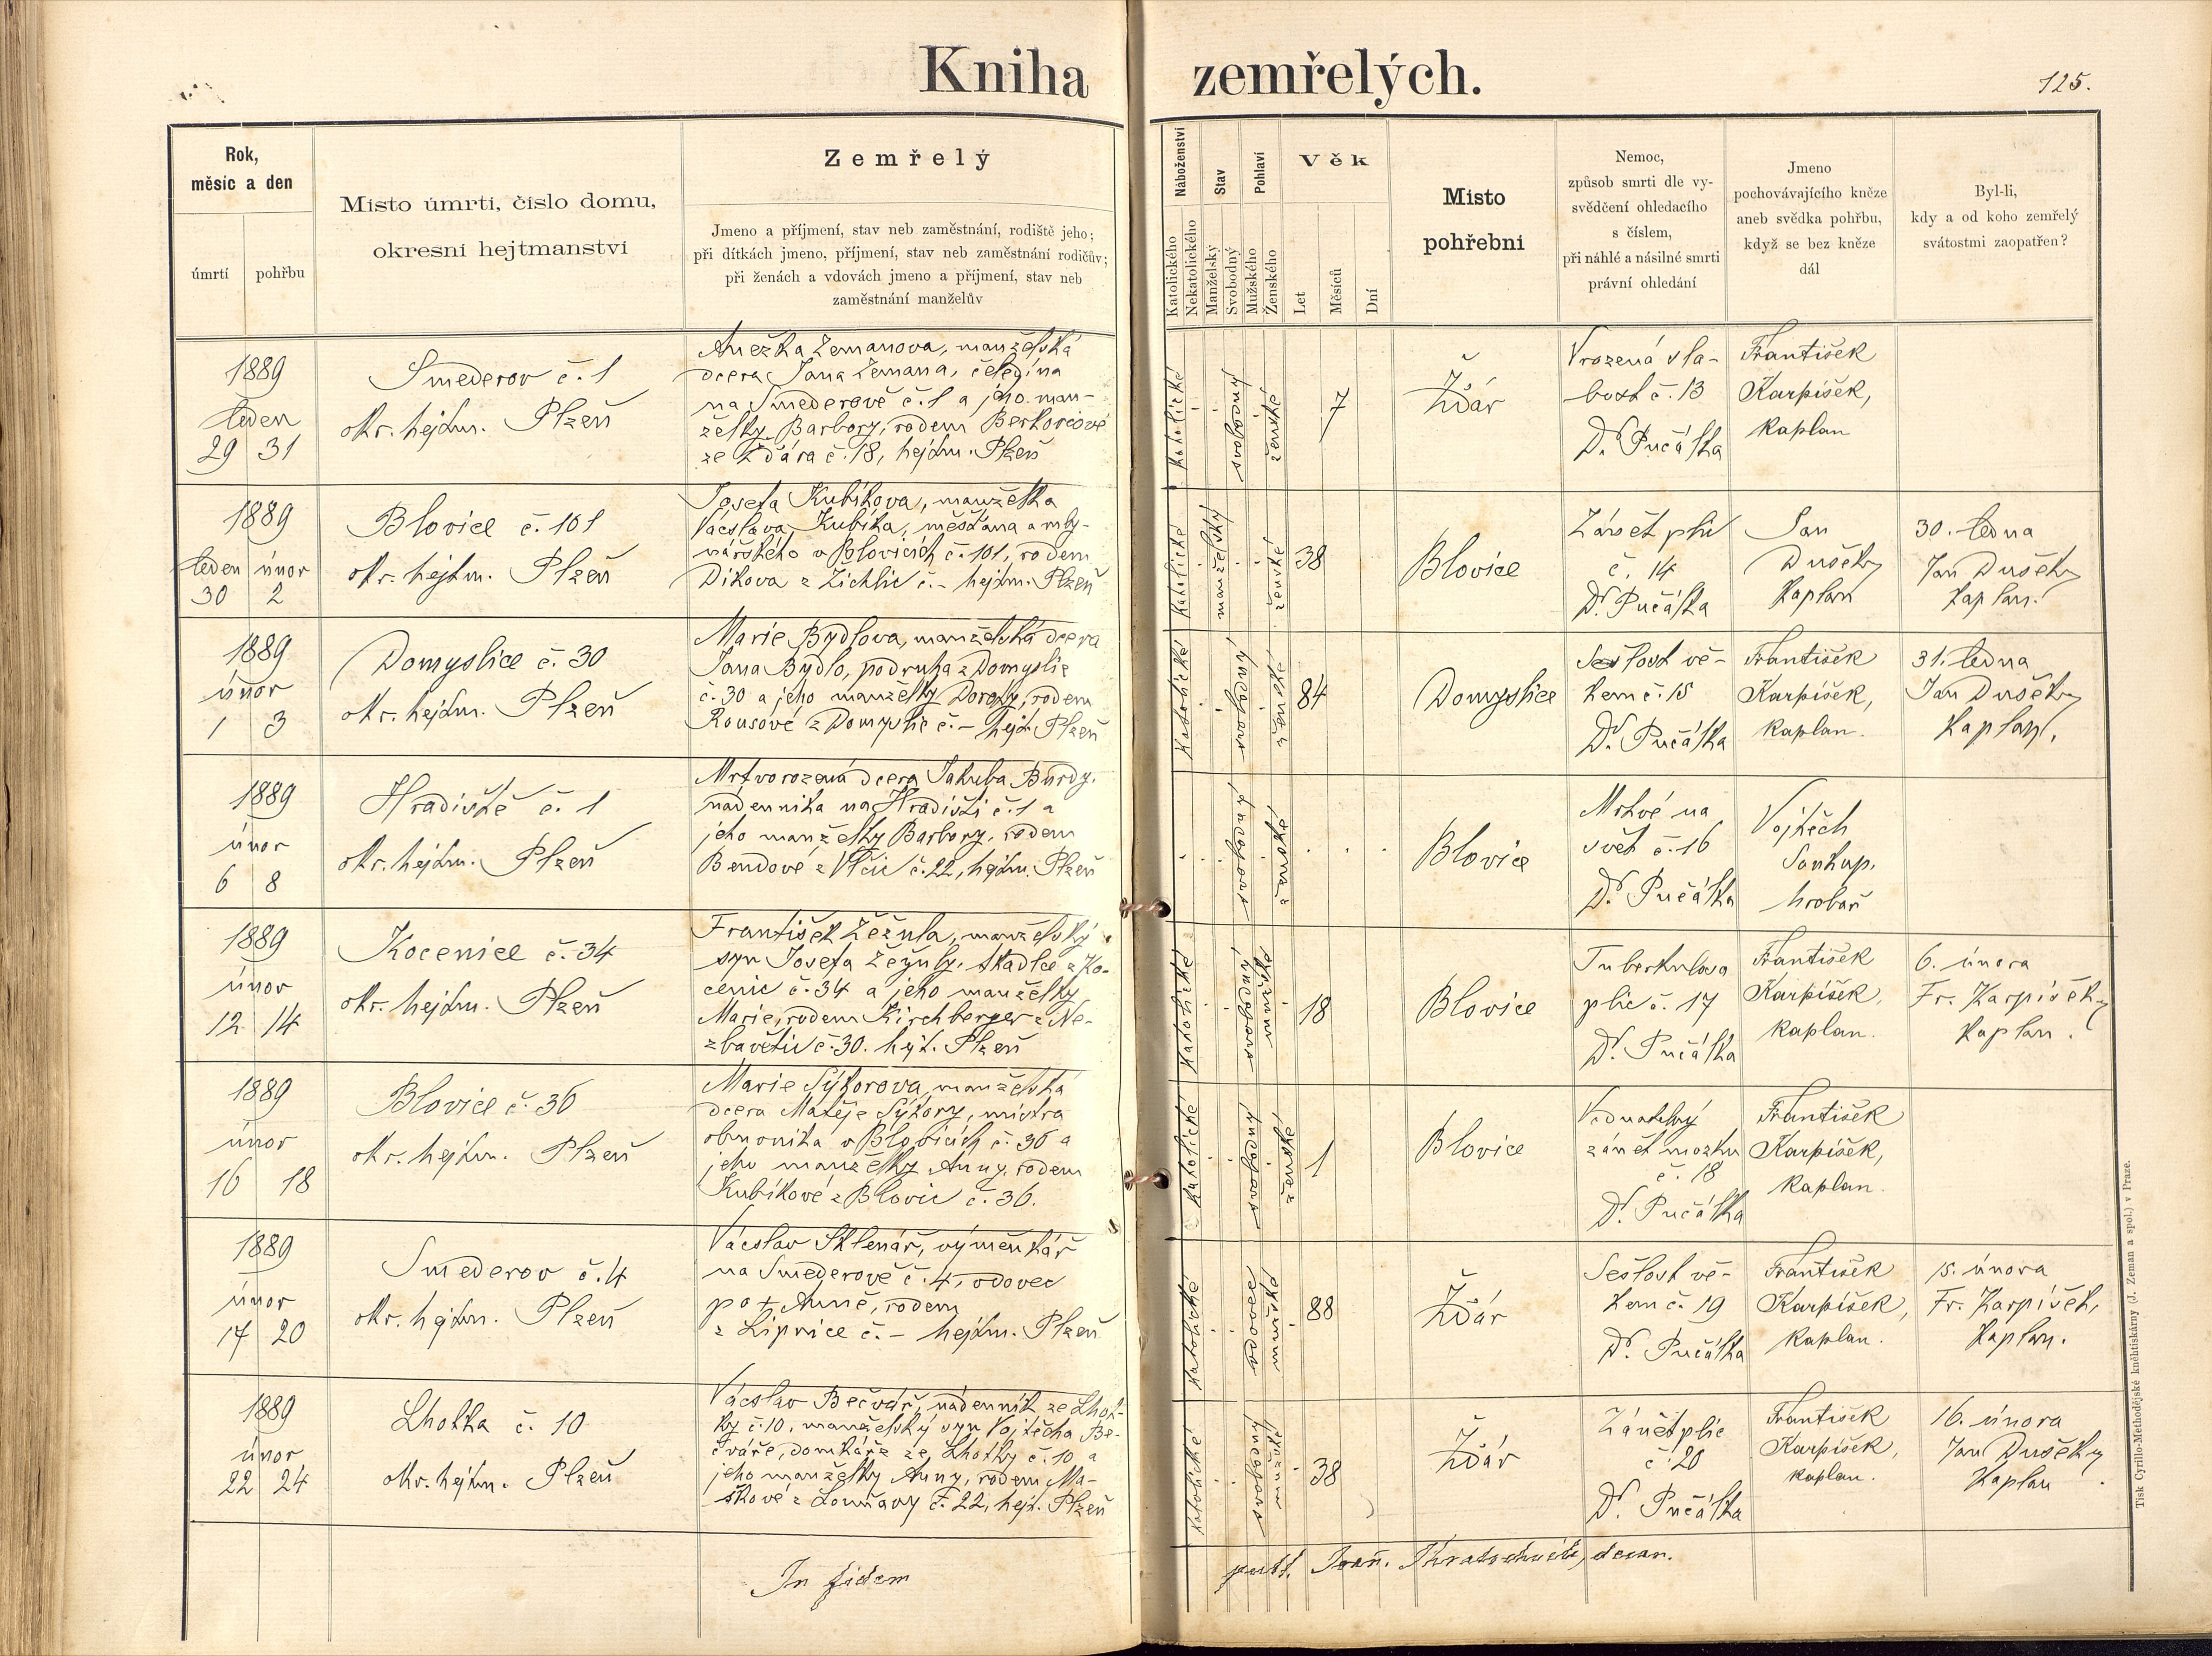 Kniha zemřelých.
125.
Rok,
měsíc a den
úmrtí
pohřbu
Místo úmrtí, číslo domu,
okresní hejtmanství
Zemřelý
Jmeno a příjmení, stav neb zaměstnání, rodiště jeho;
při dítkách jmeno, příjmení, stav neb zaměstnání rodičův;
při ženách a vdovách jmeno a příjmení, stav neb
zaměstnání manželův
Náboženství
Katolického
Nekatolického
Stav
Manželský
Svobodný
Pohlaví
Mužského
Ženského
Věk
Let
Měsíců
Dní
Místo
pohřební
Nemoc,
způsob smrti dle vy-
svědčení ohledacího
s číslem,
při náhlé a násilné smrti
právní ohledání
Jmeno
pochovávajícího kněze
aneb svědka pohřbu,
když se bez kněze
dál
Byl-li,
kdy a od koho zemřelý
svátostmi zaopatřen?
1889
leden
29 31
Smederov č. 1
okr. hejtm. Plzeň
Anežka Zemanova, manželská
dcera Jana Zemana, čeledína
na Smederově č. 1 a jeho man-
želky Barbory, rodem Berkovcové
ze Žďára č. 18, hejtm. Plzeň
katolické
svobodný
ženské
7
Žďár
Vrozená sla-
bost č. 13
Dr. Pučálka
František
Karpíšek,
kaplan
1889
leden únor
30 2
Blovice č. 101
okr. hejtm. Plzeň
Josefa Kubíkova, manželka
Václava Kubíka, měšťana a mly-
nářského v Blovicích č. 101, rodem
Díkova z Žichlic č. – hejtm. Plzeň
katolické
manželský
ženské
38
Blovice
Zánět plic
č. 14
Dr. Pučálka
Jan
Dušek
kaplan
30. ledna
Jan Dušek
kaplan.
1889
únor
1 3
Domyslice č. 30
okr. hejtm. Plzeň
Marie Bydlova, manželská dcera
Jana Bydlo, podruha z Domyslic
č. 30 a jeho manželky Doroty, rodem
Rousové z Domyslic č. – hejt. Plzeň
katolické
svobodný
ženské
84
Domyslice
Sešlost vě-
kem č. 15
Dr. Pučálka
František
Karpíšek,
kaplan.
31. ledna
Jan Dušek
kaplan.
1889
únor
6 8
Hradiště č. 1
okr. hejtm. Plzeň
Mrtvorozená dcera Jakuba Burdy,
nádenníka na Hradišti č. 1 a
jeho manželky Barbory, rodem
Bendové z Vlčic č. 22, hejtm. Plzeň
svobodný
ženské
Blovice
Mrtvé na
svět č. 16
Dr. Pučálka
Vojtěch
Soukup,
hrobař
1889
únor
12 14
Kocenice č. 34
okr. hejtm. Plzeň
František Žežula, manželský
syn Josefa Žežuly, tkadlce z Ko-
cenic č. 34 a jeho manželky
Marie, rodem Kirchberger z Ne-
zbavětic č. 30. hejt. Plzeň
katolické
svobodný
mužské
18
Blovice
Tuberkulosa
plic č. 17
Dr. Pučálka
František
Karpíšek,
kaplan.
6. února
Fr. Karpíšek
kaplan.
1889
únor
16 18
Blovice č. 36
okr. hejtm. Plzeň
Marie Sýkorova, manželská
dcera Matěje Sýkory, mistra
obuvníka v Blovicích č. 36 a
jeho manželky Anny, rodem
Kubíkové z Blovic č. 36.
katolické
svobodný
ženské
1
Blovice
Vodnatelný
zánět mozku
č. 18
Dr. Pučálka
František
Karpíšek,
kaplan.
1889
únor
17 20
Smederov č. 4
okr. hejtm. Plzeň
Václav Sklenář, výměnkář
na Smederově č. 4, vdovec
po + Anně, rodem
z Lipnice č. – hejtm. Plzeň
katolické
vdovec
mužské
88
Žďár
Sešlost vě-
kem č. 19
Dr. Pučálka
František
Karpíšek,
kaplan.
15. února
Fr. Karpíšek,
kaplan.
1889
únor
22 24
Lhotka č. 10
okr. hejtm. Plzeň
Václav Bečvář, nádenník ze Lhot-
ky č. 10, manželský syn Vojtěcha Be-
čváře, domkáře ze Lhotky č. 10 a
jeho manželky Anny, rodem Ma-
škové z Louňavy č. 22, hejt. Plzeň
katolické
svobodný
mužské
38
Žďár
Zánět plic
č. 20
Dr. Pučálka
František
Karpíšek,
kaplan.
16. února
Jan Dušek
kaplan
In fidem
Tisk Cyrillo-Methodějské knihtiskárny (J. Zeman a spol.) v Praze.